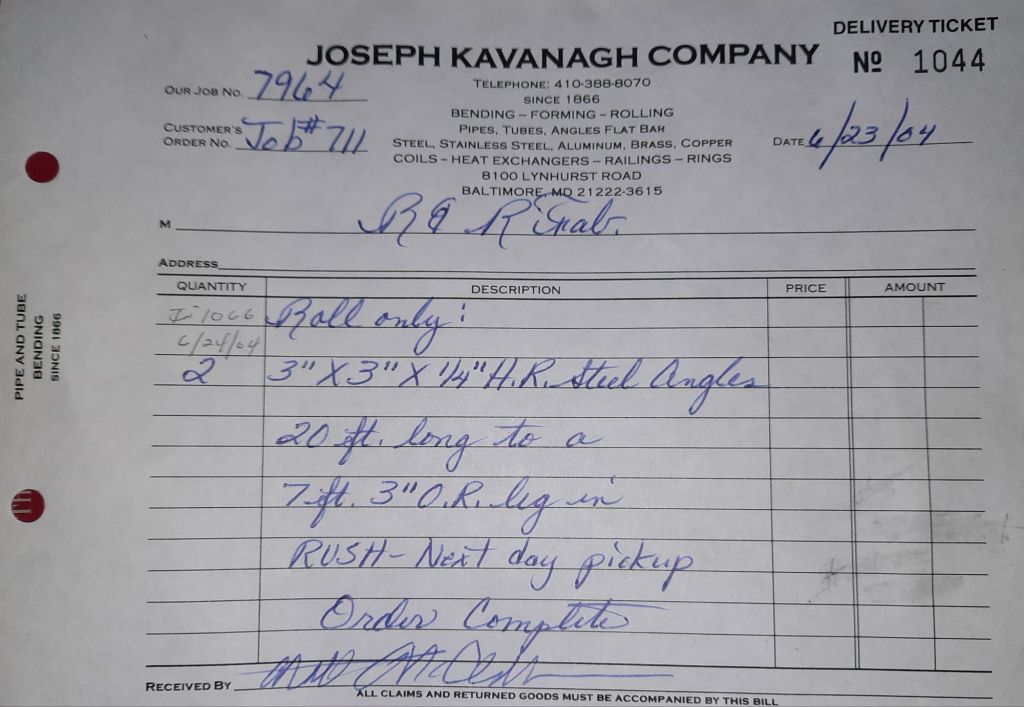 DELIVERY TICKET
JOSEPH KAVANAGH COMPANY
Nº 1044
TELEPHONE: 410-388-8070
SINCE 1866
BENDING – FORMING – ROLLING
PIPES, TUBES, ANGLES FLAT BAR
STEEL, STAINLESS STEEL, ALUMINUM, BRASS, COPPER
COILS – HEAT EXCHANGERS – RAILINGS – RINGS
8100 LYNHURST ROAD
BALTIMORE, MD 21222-3615
OUR JOB NO. 7964
CUSTOMER'S ORDER NO. Job # 711
DATE 6/23/04
M R & R Fab.
ADDRESS
QUANTITY DESCRIPTION PRICE AMOUNT
1066 Roll only:
6/24/04
2 3" X 3" X 1/4" H.R. Steel Angles
20 ft. long to a
7 ft. 3" O.R. leg in
RUSH - Next day pickup
Order Complete
RECEIVED BY
ALL CLAIMS AND RETURNED GOODS MUST BE ACCOMPANIED BY THIS BILL
PIPE AND TUBE
BENDING
SINCE 1866